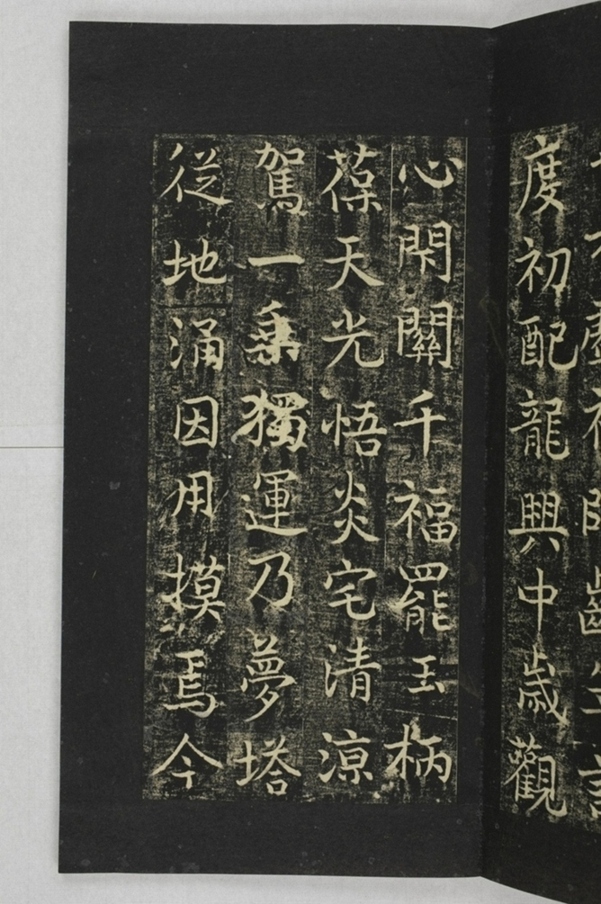 度初配龍興中歲觀
心閑關千福罷玉柄
葆天光悟炎宅清涼
駕一乗獨運乃夢塔
從地涌因用摸焉今